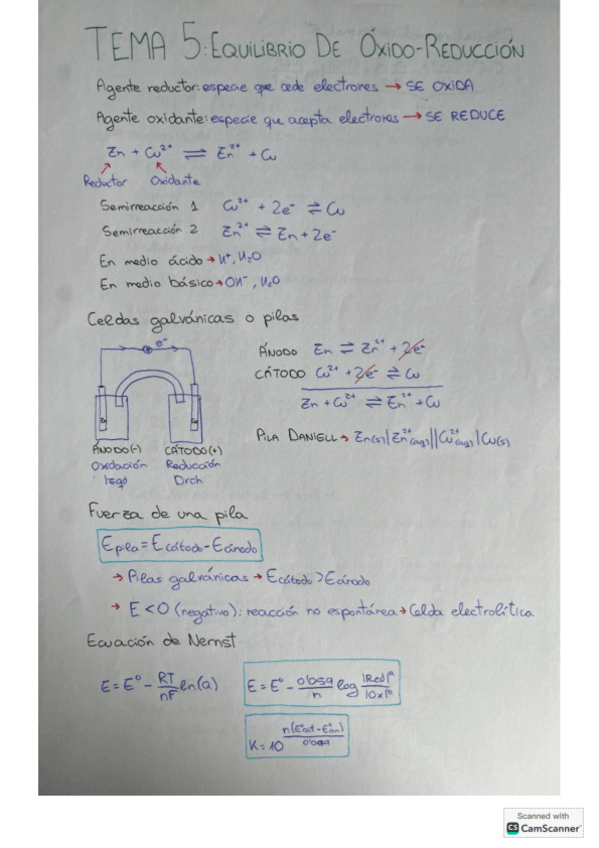 TEMA 5: EQUILIBRIO DE ÓXIDO-REDUCCIÓN
Agente reductor: especie que cede electrones → SE OXIDA
Agente oxidante: especie que acepta electrones → SE REDUCE
Zn + Cu²⁺ ⇌ Zn²⁺ + Cu
Reductor Oxidante
Semirreacción 1 Cu²⁺ + 2e⁻ ⇌ Cu
Semirreacción 2 Zn²⁺ ⇌ Zn + 2e⁻
En medio ácido → H⁺, H₂O
En medio básico → OH⁻, H₂O
Celdas galvánicas o pilas
e⁻
ÁNODO Zn ⇌ Zn²⁺ + 2e⁻
CÁTODO Cu²⁺ + 2e⁻ ⇌ Cu
Zn + Cu²⁺ ⇌ Zn²⁺ + Cu
Zn Cu
PILA DANIELL → Zn(s)|Zn²⁺(aq)||Cu²⁺(aq)|Cu(s)
ÁNODO(-) CÁTODO(+)
Oxidación Reducción
Izqd Drch
Fuerza de una pila
Epila = Ecátodo - Eánodo
→ Pilas galvánicas → Ecátodo > Eánodo
→ E < 0 (negativo): reacción no espontánea → Celda electrolítica
Ecuación de Nernst
E = E° - RT/nF ln(Q) E = E° - 0'059/n log |Red|ᵃ/|Ox|ᵇ
K = 10^(n(E°cat - E°an)/0'059)
Scanned with
CS CamScanner